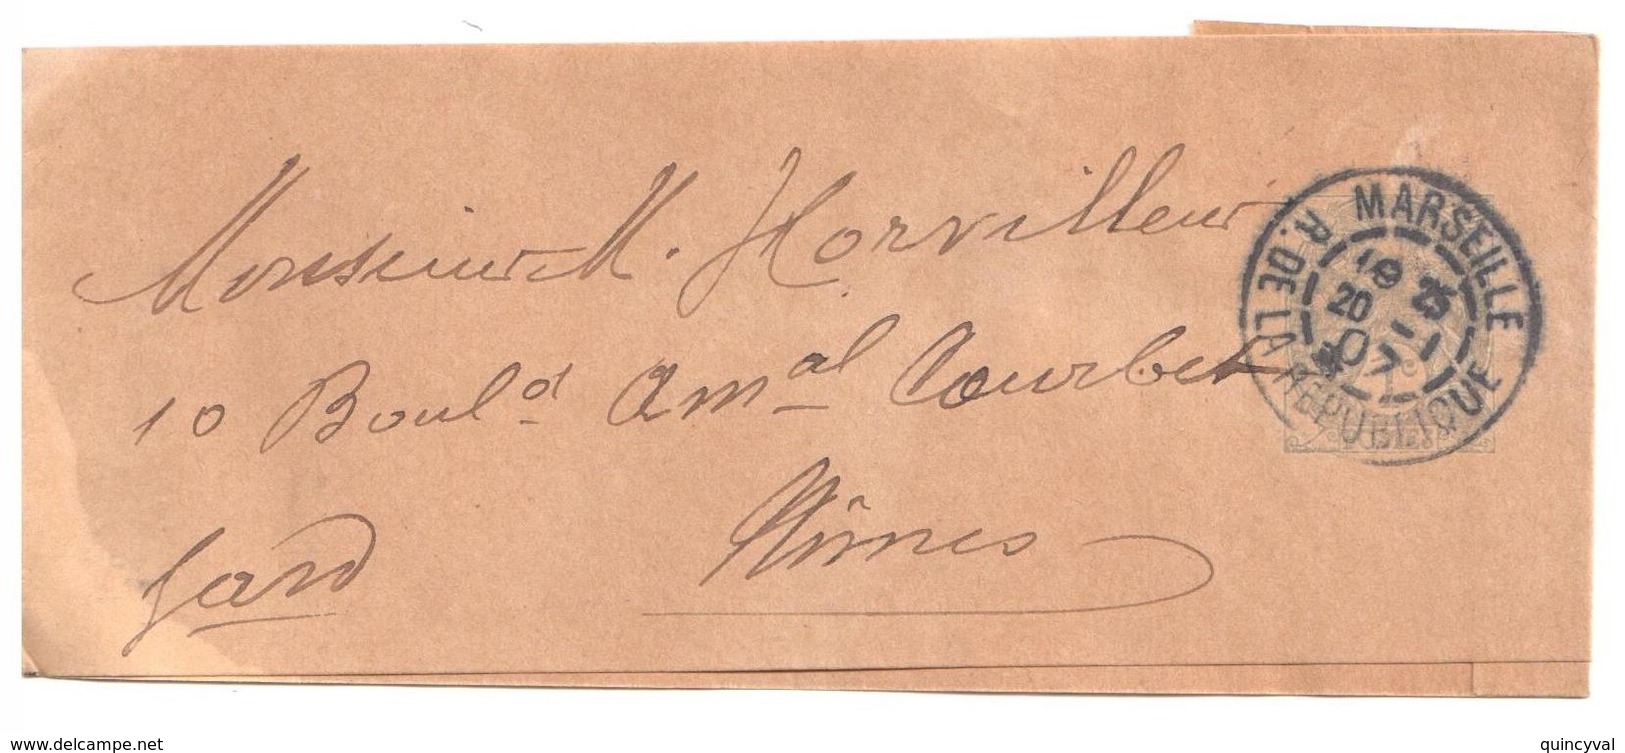 Monsieur M. Horvilleur
10 Boulᵈ Amᵃˡ Courbet
Nîmes
Gard
MARSEILLE
R. DE LA RÉPUBLIQUE
20
07
1c
POSTES
www.delcampe.net
quincyval